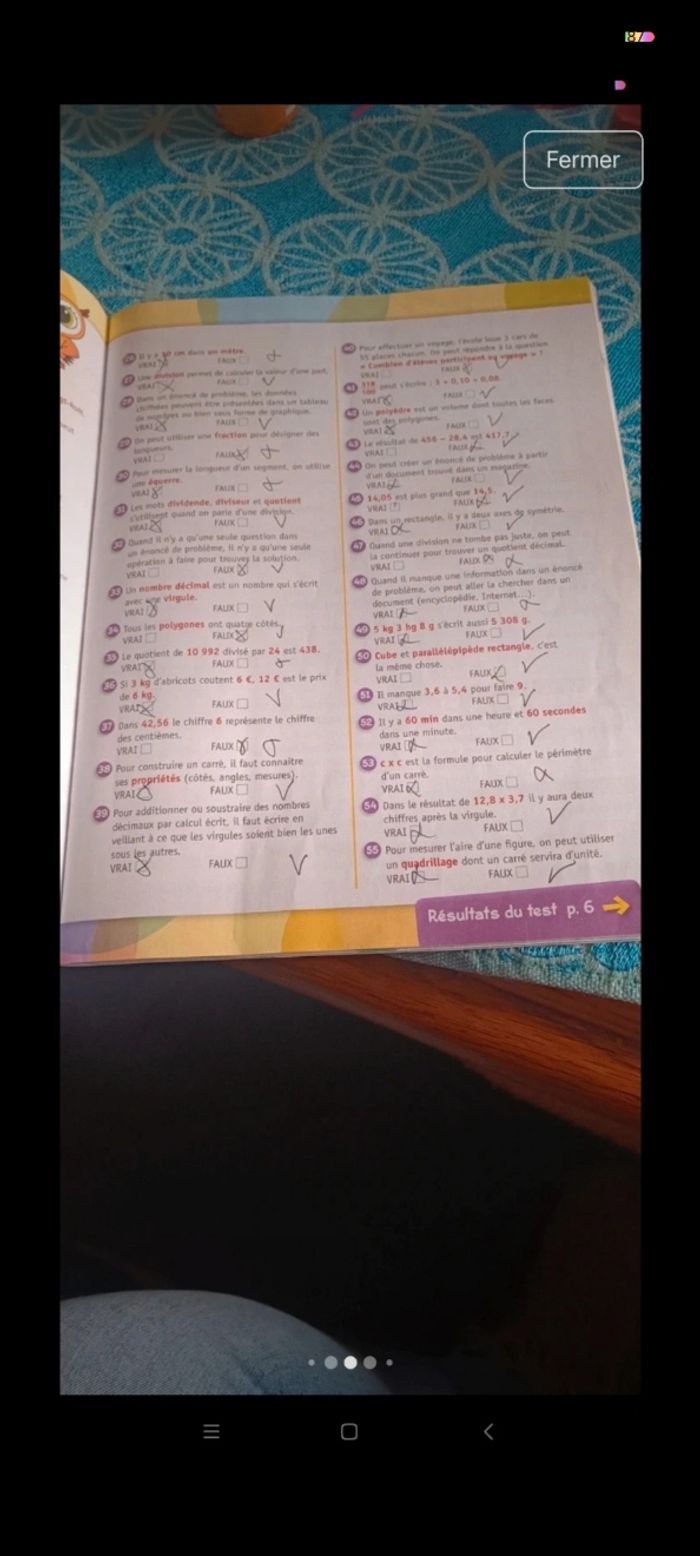 Fermer
26 Il y a 10 cm dans un mètre.
VRAI FAUX
27 Une division permet de calculer la valeur d'une part.
VRAI FAUX
28 Dans un énoncé de problème, les données
chiffrées peuvent être présentées dans un tableau
de nombres ou bien sous forme de graphique.
VRAI FAUX
29 On peut utiliser une fraction pour désigner des
longueurs.
VRAI FAUX
30 Pour mesurer la longueur d'un segment, on utilise
une équerre.
VRAI FAUX
31 Les mots dividende, diviseur et quotient
s'utilisent quand on parle d'une division.
VRAI FAUX
32 Quand il n'y a qu'une seule question dans
un énoncé de problème, il n'y a qu'une seule
opération à faire pour trouver la solution.
VRAI FAUX
33 Un nombre décimal est un nombre qui s'écrit
avec une virgule.
VRAI FAUX
34 Tous les polygones ont quatre côtés.
VRAI FAUX
35 Le quotient de 10 992 divisé par 24 est 438.
VRAI FAUX
36 Si 3 kg d'abricots coutent 6 €, 12 € est le prix
de 6 kg.
VRAI FAUX
37 Dans 42,56 le chiffre 6 représente le chiffre
des centièmes.
VRAI FAUX
38 Pour construire un carré, il faut connaitre
ses propriétés (côtés, angles, mesures).
VRAI FAUX
39 Pour additionner ou soustraire des nombres
décimaux par calcul écrit, il faut écrire en
veillant à ce que les virgules soient bien les unes
sous les autres.
VRAI FAUX
40 Pour effectuer un voyage, l'école loue 3 cars de
55 places chacun. On peut répondre à la question
« Combien d'élèves participent au voyage » ?
VRAI FAUX
41 318/100 peut s'écrire : 3 + 0,10 + 0,08.
VRAI FAUX
42 Un polyèdre est un volume dont toutes les faces
sont des polygones.
VRAI FAUX
43 Le résultat de 456 – 28,4 est 417,7.
VRAI FAUX
44 On peut créer un énoncé de problème à partir
d'un document trouvé dans un magazine.
VRAI FAUX
45 14,05 est plus grand que 14,5.
VRAI FAUX
46 Dans un rectangle, il y a deux axes de symétrie.
VRAI FAUX
47 Quand une division ne tombe pas juste, on peut
la continuer pour trouver un quotient décimal.
VRAI FAUX
48 Quand il manque une information dans un énoncé
de problème, on peut aller la chercher dans un
document (encyclopédie, Internet...).
VRAI FAUX
49 5 kg 3 hg 8 g s'écrit aussi 5 308 g.
VRAI FAUX
50 Cube et parallélépipède rectangle, c'est
la même chose.
VRAI FAUX
51 Il manque 3,6 à 5,4 pour faire 9.
VRAI FAUX
52 Il y a 60 min dans une heure et 60 secondes
dans une minute.
VRAI FAUX
53 c x c est la formule pour calculer le périmètre
d'un carré.
VRAI FAUX
54 Dans le résultat de 12,8 x 3,7 il y aura deux
chiffres après la virgule.
VRAI FAUX
55 Pour mesurer l'aire d'une figure, on peut utiliser
un quadrillage dont un carré servira d'unité.
VRAI FAUX
Résultats du test p. 6